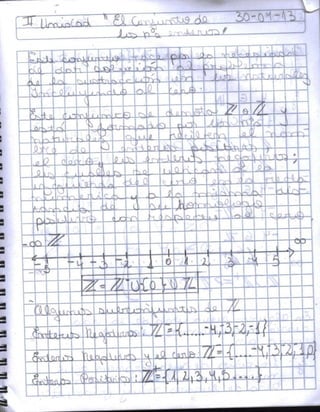 II Unidad "El Conjunto de 30-04-13
Los nºs enteros"
Este conjunto nace por la necesidad
de dar solución al problema
de la sustracción en los naturales
Incluyendo al cero.
Este conjunto se denota Z o ℤ y
está formado por los nºs
naturales que reciben el nom-
bre de enteros positivos,
el cero y los enteros negativos;
los cuales se ubican a la
izquierda del cero
numérica y a la misma dis-
tancia de su homólogo
positivo con respecto al cero.
-∞ ℤ ∞
-5 -4 -3 -2 -1 0 1 2 3 4 5
ℤ = ℤ⁻U{0}U ℤ
Algunos subconjuntos de ℤ
Enteros Negativos: ℤ⁻={.....-4,-3,-2,-1}
Enteros Negativos y el cero ℤ={....-4,-3,-2,-1,0}
Enteros Positivos: ℤ⁺={1,2,3,4,5.....}